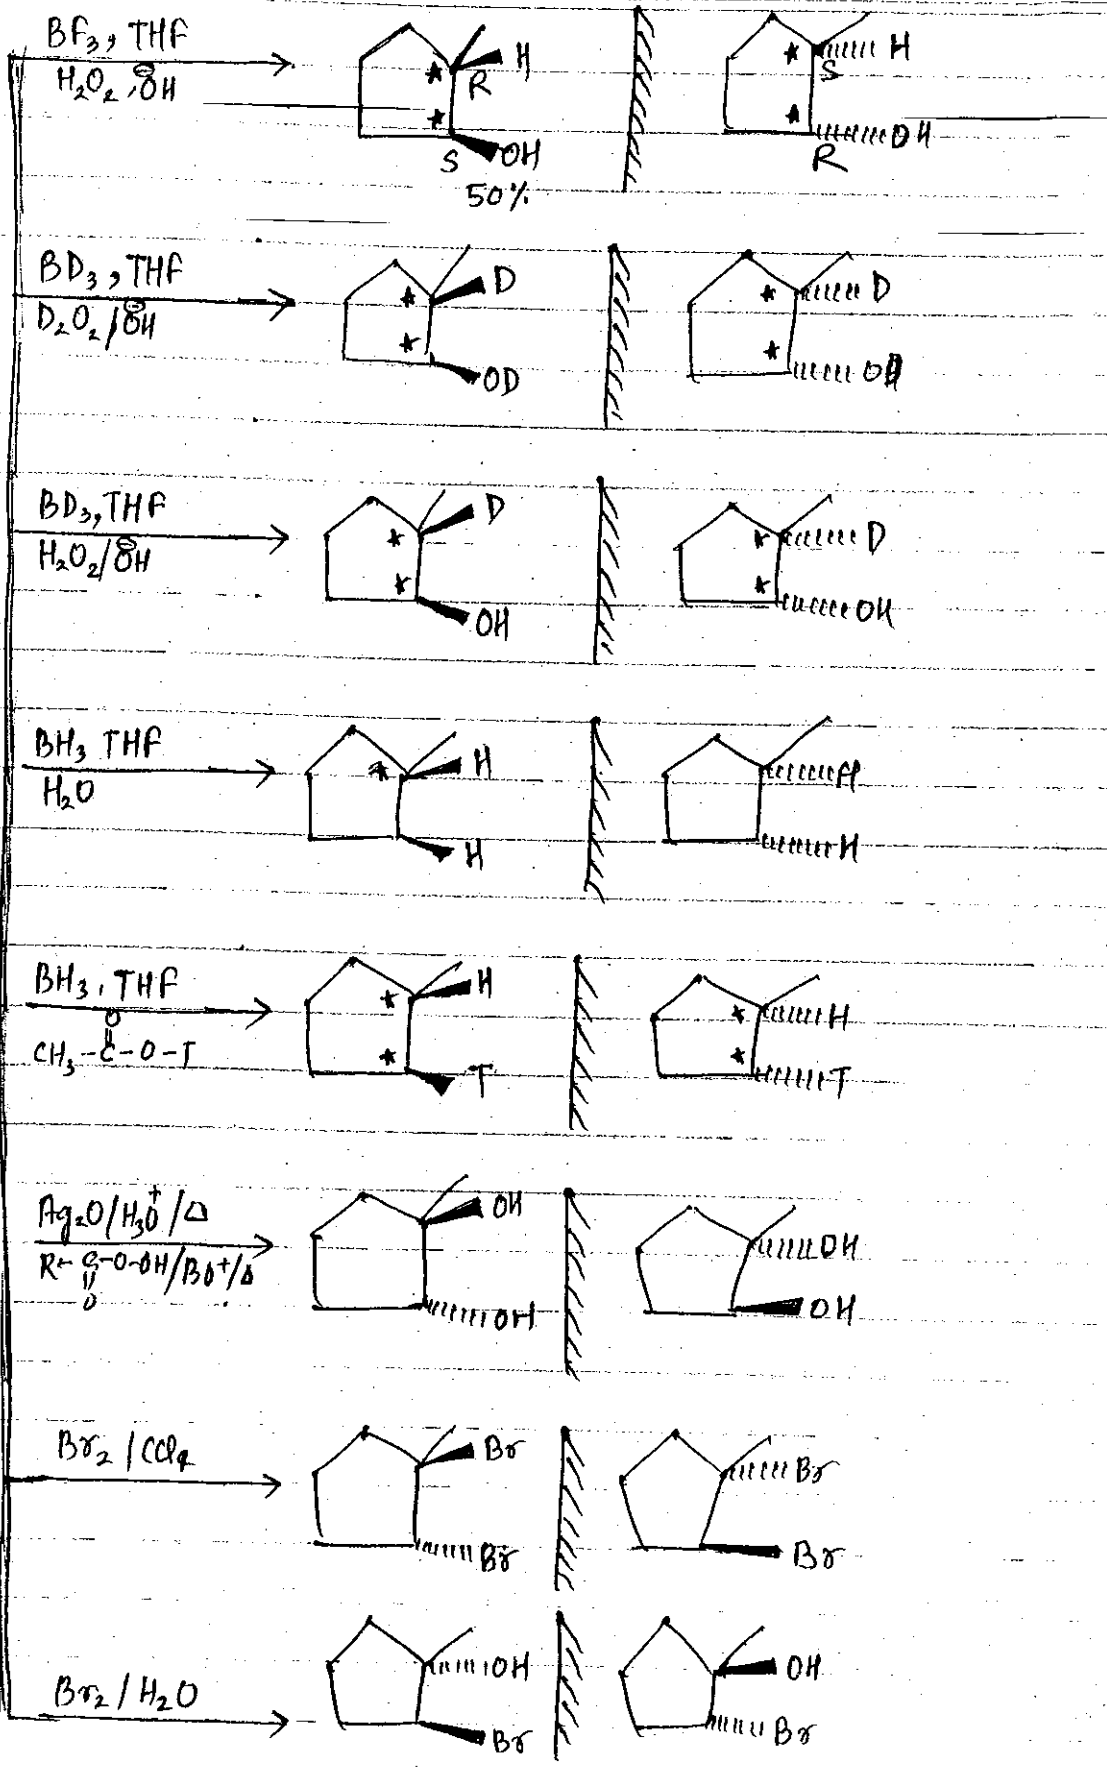 BF₃, THF
H₂O₂, ⊖OH
* R H
* S OH
50%
* S H
* R OH
BD₃, THF
D₂O₂/⊖OH
* D
* OD
* D
* OD
BD₃, THF
H₂O₂/⊖OH
* D
* OH
* D
* OH
BH₃ THF
H₂O
* H
H
H
H
BH₃, THF
O
CH₃-C-O-T
* H
* T
* H
* T
Ag₂O/H₃O⁺/Δ
R-C-O-OH/
O
OH
OH
OH
OH
Br₂/CCl₄
Br
Br
Br
Br
Br₂/H₂O
OH
Br
OH
Br